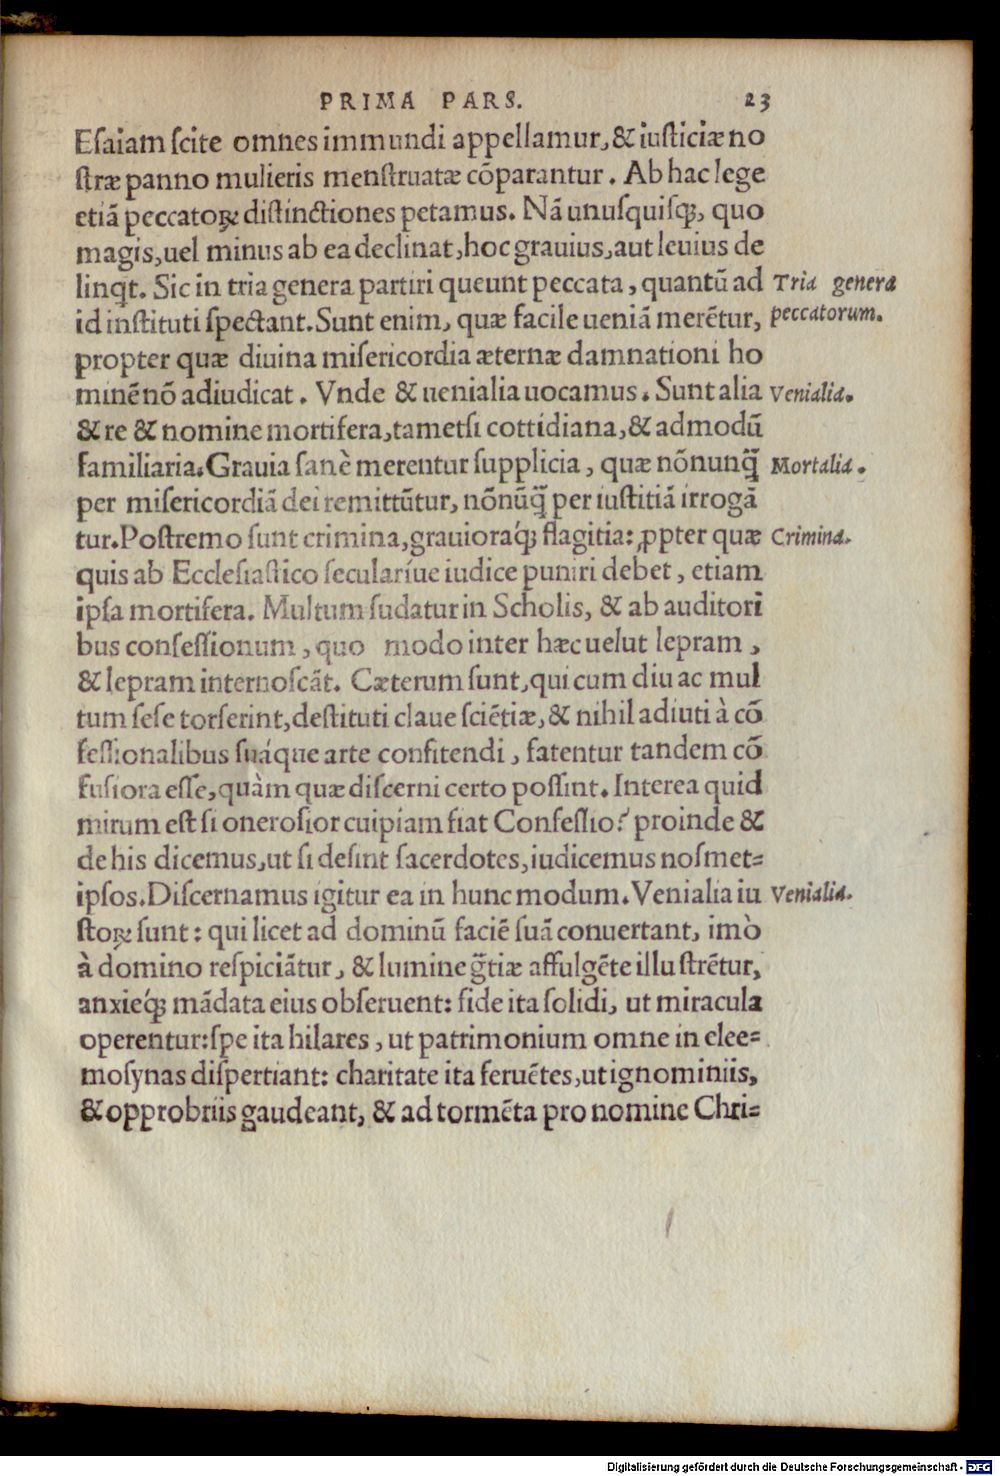 PRIMA PARS. 23
Esaiam scite omnes immundi appellamur, & iusticiæ no
stræ panno mulieris menstruatæ cōparantur. Ab hac lege
etiā peccatoꝝ distinctiones petamus. Nā unusquisq;, quo
magis, uel minus ab ea declinat, hoc grauius, aut leuius de
linqt. Sic in tria genera partiri queunt peccata, quantū ad
Tria genera
id instituti spectant. Sunt enim, quæ facile ueniā merētur,
peccatorum.
propter quæ diuina misericordia æternæ damnationi ho
minē nō adiudicat. Vnde & uenialia uocamus. Sunt alia
Venialia.
& re & nomine mortifera, tametsi cottidiana, & admodū
familiaria. Grauia sanè merentur supplicia, quæ nōnunq̄
Mortalia.
per misericordiā dei remittūtur, nōnūq̄ per iustitiā irrogā
tur. Postremo sunt crimina, grauioraq́; flagitia: ꝓpter quæ
Crimina.
quis ab Ecclesiastico secularíue iudice puniri debet, etiam
ipsa mortifera. Multum sudatur in Scholis, & ab auditori
bus confessionum, quo modo inter hæc uelut lepram,
& lepram internoscāt. Cæterum sunt, qui cum diu ac mul
tum sese torserint, destituti claue sciētiæ, & nihil adiuti à cō
fessionalibus suáque arte confitendi, fatentur tandem cō
fusiora esse, quàm quæ discerni certo possint. Interea quid
mirum est si onerosior cuipiam fiat Confessio? proinde &
de his dicemus, ut si desint sacerdotes, iudicemus nosmet=
ipsos. Discernamus igitur ea in hunc modum. Venialia iu
Venialia.
stoꝝ sunt: qui licet ad dominū faciē suā conuertant, imò
à domino respiciātur, & lumine gr̄tiæ affulgēte illustrētur,
anxieq́; mādata eius obseruent: fide ita solidi, ut miracula
operentur: spe ita hilares, ut patrimonium omne in elee=
mosynas dispertiant: charitate ita feruētes, ut ignominiis,
& opprobriis gaudeant, & ad tormēta pro nomine Chri=
Digitalisierung gefördert durch die Deutsche Forschungsgemeinschaft - DFG